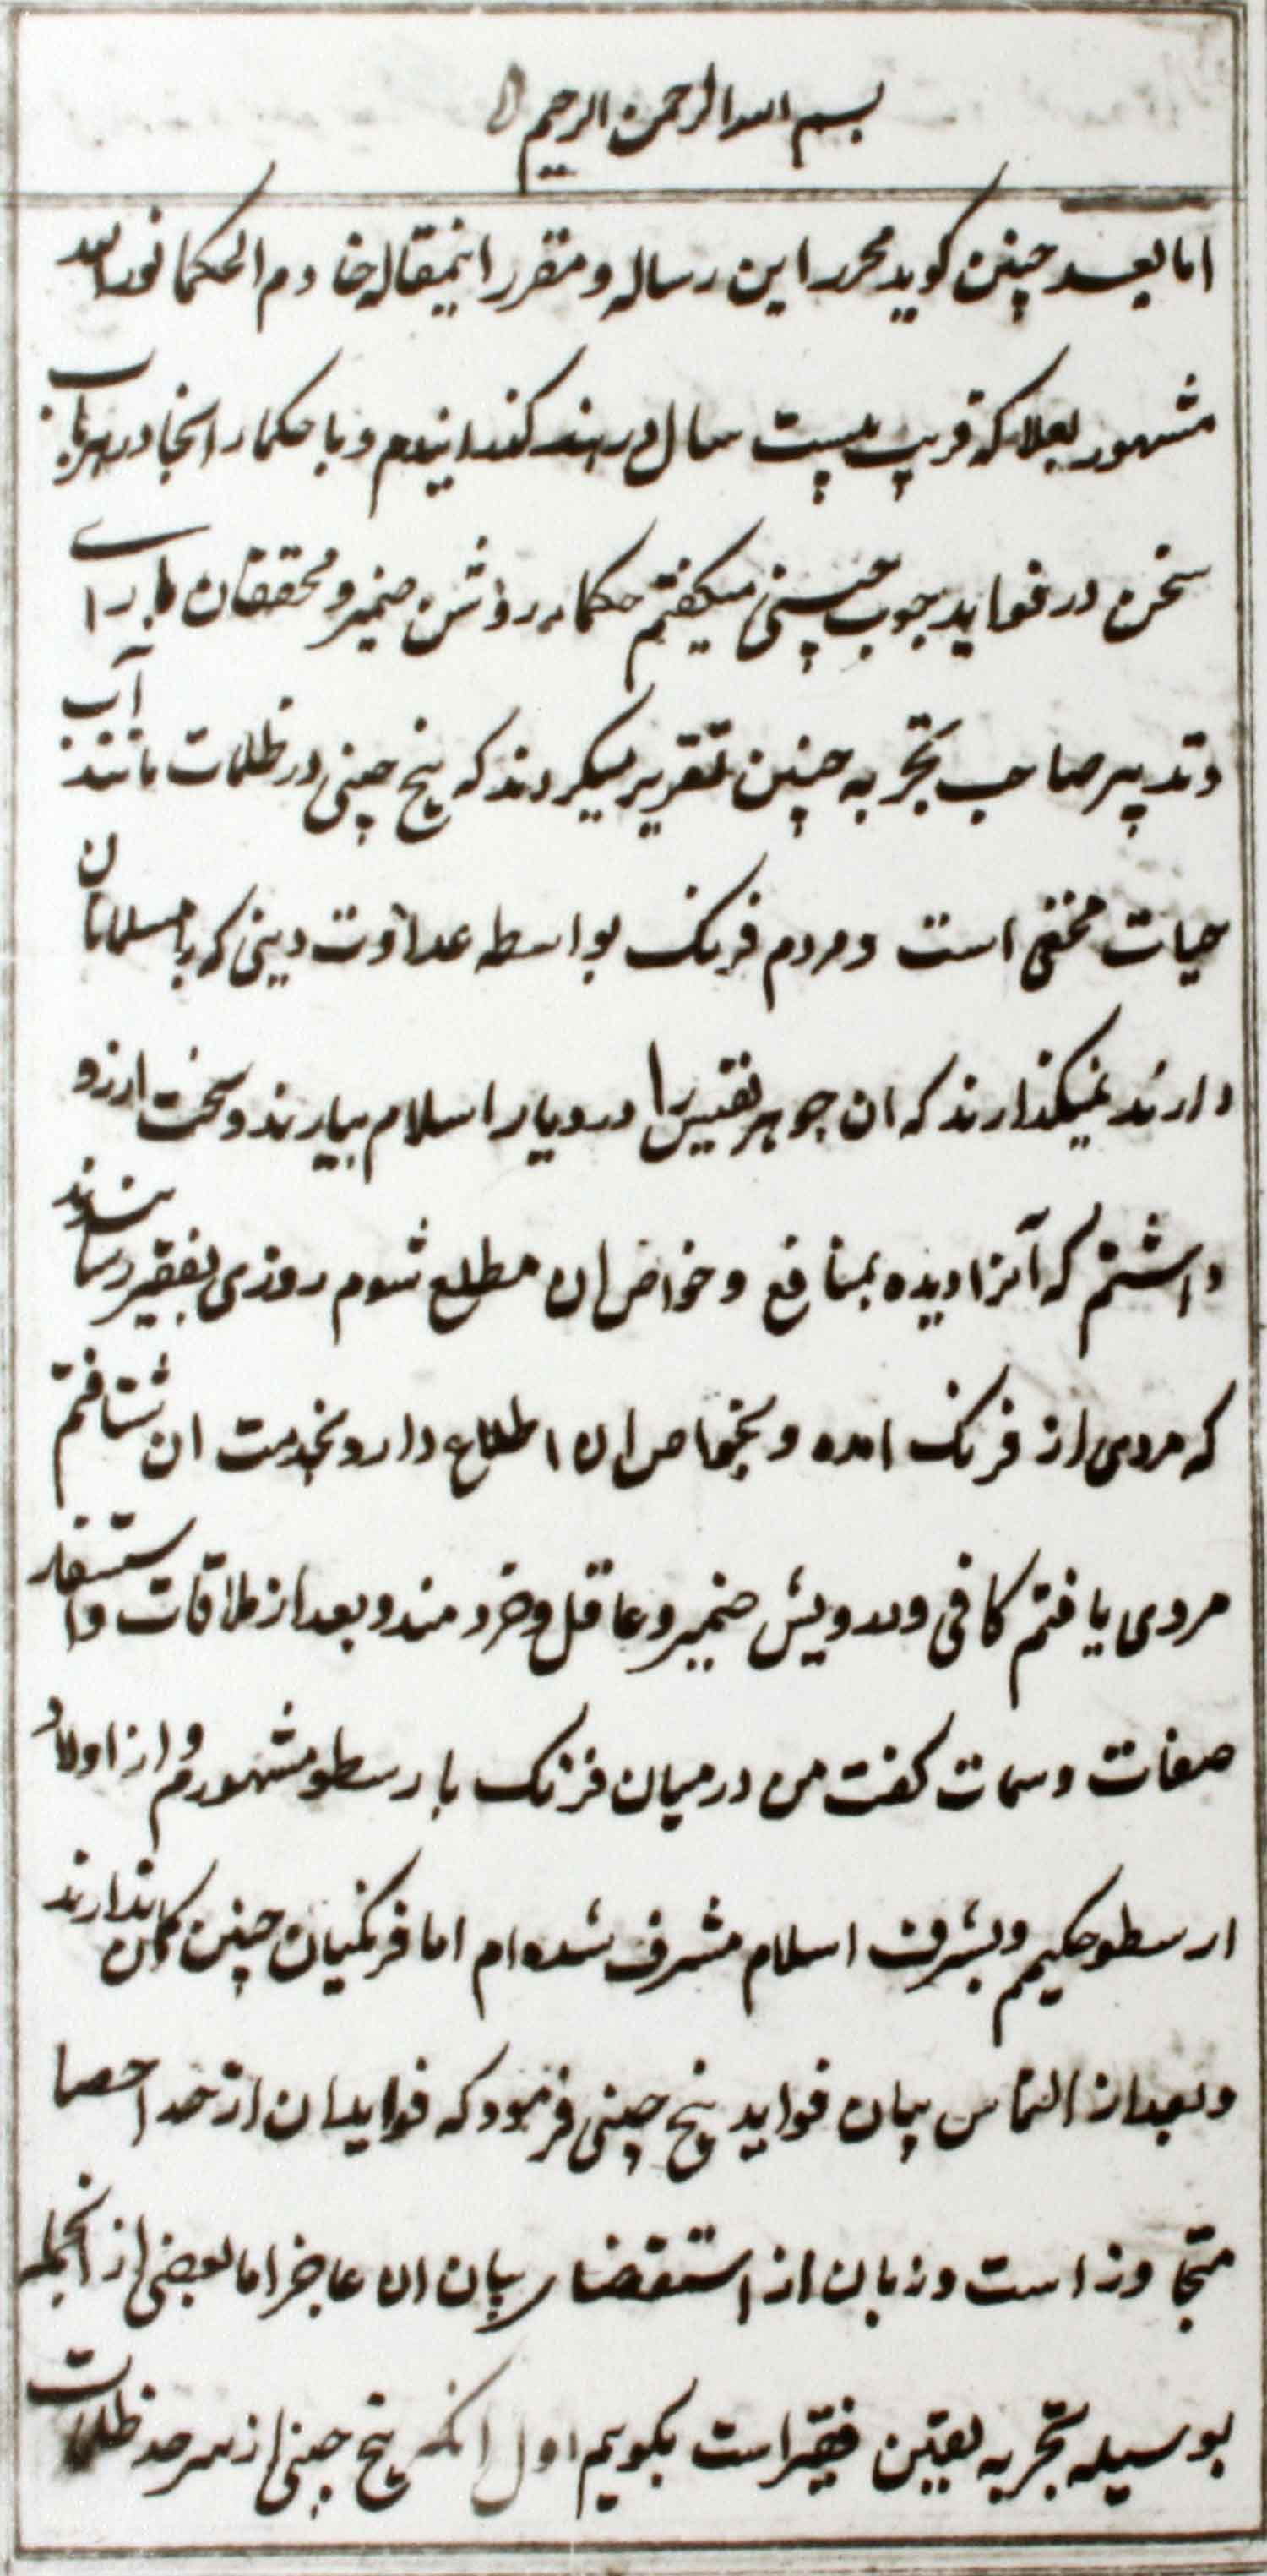 بسم الله الرحمن الرحیم
اما بعد چنین کوید محرر این رساله و مقرر اینمقاله خادم الحکما نورالله
مشهور بعلا که قریب بیست سال در هند کذرانیدم و با حکماء انجا در هر باب
سخن در فواید چوب چینی میکفتم حکماء روشن ضمیر و محققان با رای
و تدبیر صاحب تجربه چنین تقریر میکردند که بیخ چینی در ظلمات مانند آب
حیات مخفی است و مردم فرنک بواسطه عداوت دینی که با مسلمانان
دارند نمیکذارند که ان جوهر نفیس را در دیار اسلام بیارند و سخت ارزو
داشتم که آنرا دیده بمنافع و خواص ان مطلع شوم روزی بفقیر رسانیدند
که مردی از فرنک امده و بخواص ان اطلاع دارد بخدمت ان شتافتم
مردی یافتم کافی و درویش ضمیر و عاقل و خردمند و بعد از ملاقات و استفسار
صفات و سمات کفت من در میان فرنک بارسطو مشهورم و از اولاد
ارسطو حکیم و بشرف اسلام مشرف شده‌ام اما فرنکیان چنین کمان ندارند
و بعد از التماس بیان فواید بیخ چینی فرمود که فواید ان از حد احصا
متجاوز است و زبان از استقصاء بیان ان عاجز اما بعضی از انجمله
بوسیله تجربه یقین فقیر است بکویم اول انکه بیخ چینی از سرحد ظلمات